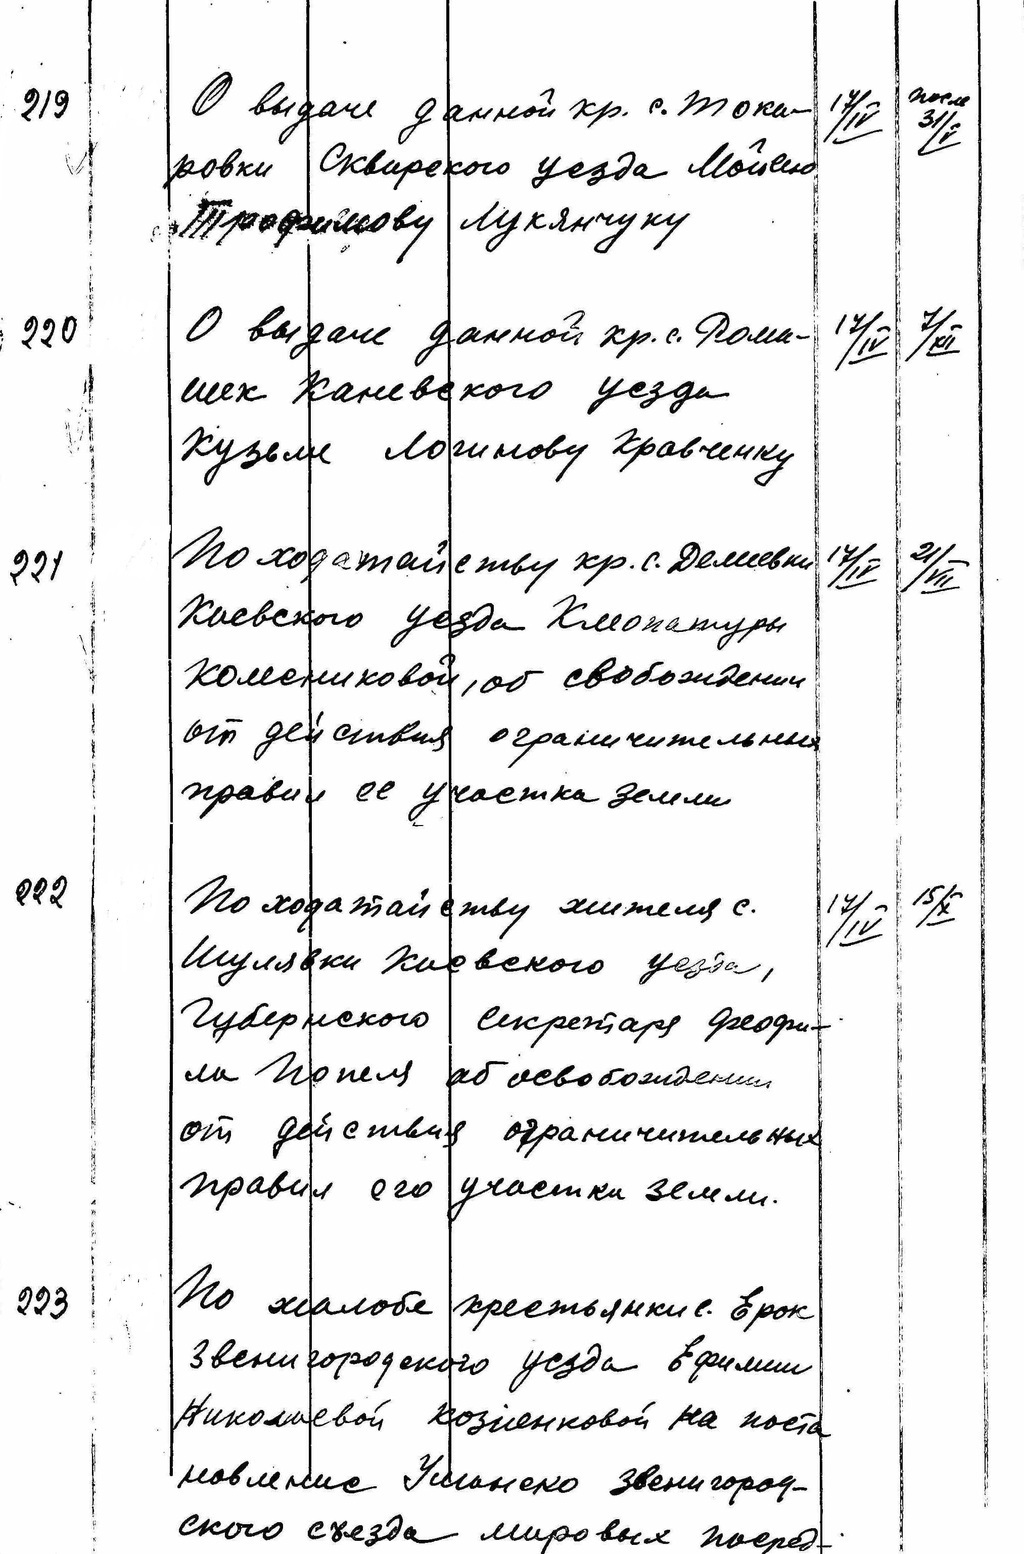 219 О выдаче данной кр. с. Тока- 17/IV после 31/V
ровки Сквирского уезда Мойсею
Трофимову Лукянчуку
220 О выдаче данной кр. с. Рома- 17/IV 7/XII
шек Каневского уезда
Кузьме Логинову Кравченку
221 По ходатайству кр. с. Демиевки 17/IV 21/VIII
Киевского уезда Клеопатуры
Колесниковой, об свобождении
от действия ограничительных
правил ее участка земли
222 По ходатайству жителя с. 17/IV 15/X
Шулявки Киевского уезда,
Губернского Секретаря Феофи-
ла Попеля об освобождении
от действия ограничительных
правил его участка земли.
223 По жалобе крестьянки с. Ерок
Звенигородского уезда Ефимии
Николаевой Козиенковой на поста
новление Уманско Звенигород-
ского съезда мировых посред-